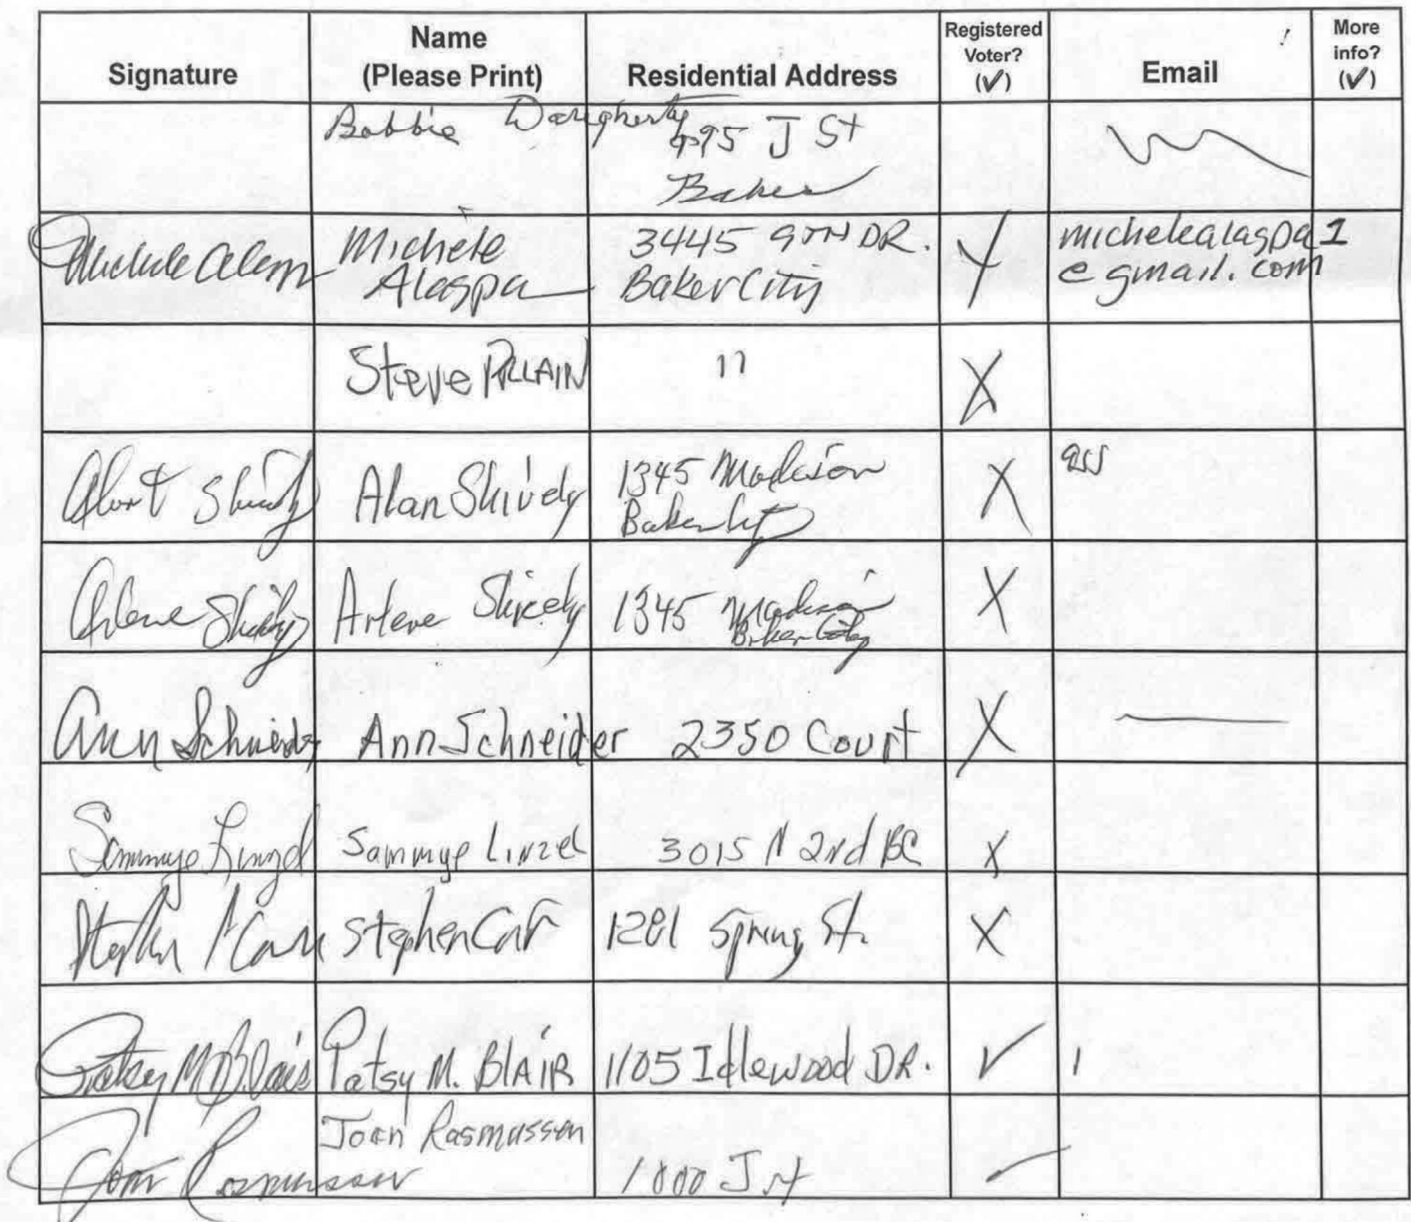 Signature
Name
(Please Print)
Residential Address
Registered
Voter?
(✓)
Email
More
info?
(✓)
Bobbie Daugherty
495 J St
Baker
Michele
Alaspa
3445 9TH DR.
Baker City
michelealaspa1
@gmail.com
Steve
"
X
Alan Shively
1345 Madison
Baker City
X
Arlene Shively
Arlene Shively
1345 Madison
Baker City
X
Ann Schneider
Ann Schneider
2350 Court
X
Sammye Linzel
Sammye Linzel
3015 N 2nd BC
X
Stephen Carr
1281 Spring St.
X
Patsy M Blair
Patsy M. BLAIR
1105 Idlewood DR.
✓
Joan Rasmussen
Joan Rasmussen
1800 J st